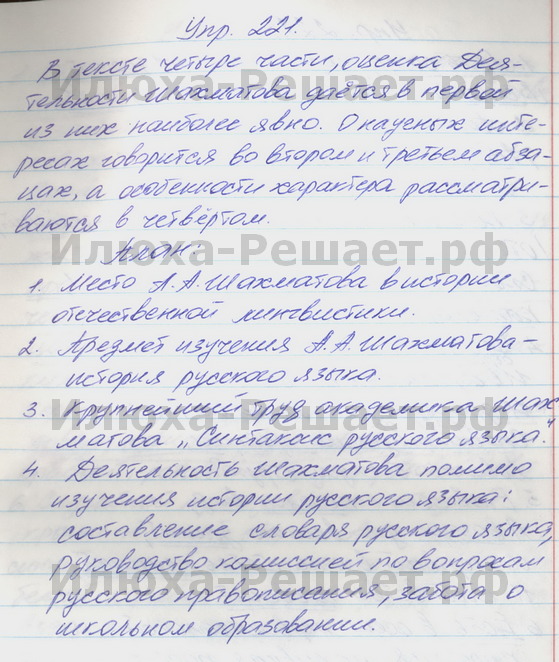 Упр. 221.
В тексте четыре части, оценка Дея-
тельности Шахматова даётся в первой
из них наиболее явно. О научных инте-
ресах говорится во втором и третьем абза-
цах, а особенности характера рассматри-
ваются в четвёртом.
План:
1. Место А.А. Шахматова в истории
отечественной лингвистики.
2. Предмет изучения А.А. Шахматова -
история русского языка.
3. Крупнейший труд академика Шах-
матова „Синтаксис русского языка."
4. Деятельность Шахматова помимо
изучения истории русского языка:
составление словаря русского языка,
руководство комиссией по вопросам
русского правописания, забота о
школьном образовании.
Илюха-Решает.рф
Илюха-Решает.рф
Илюха-Решает.рф
Илюха-Решает.рф